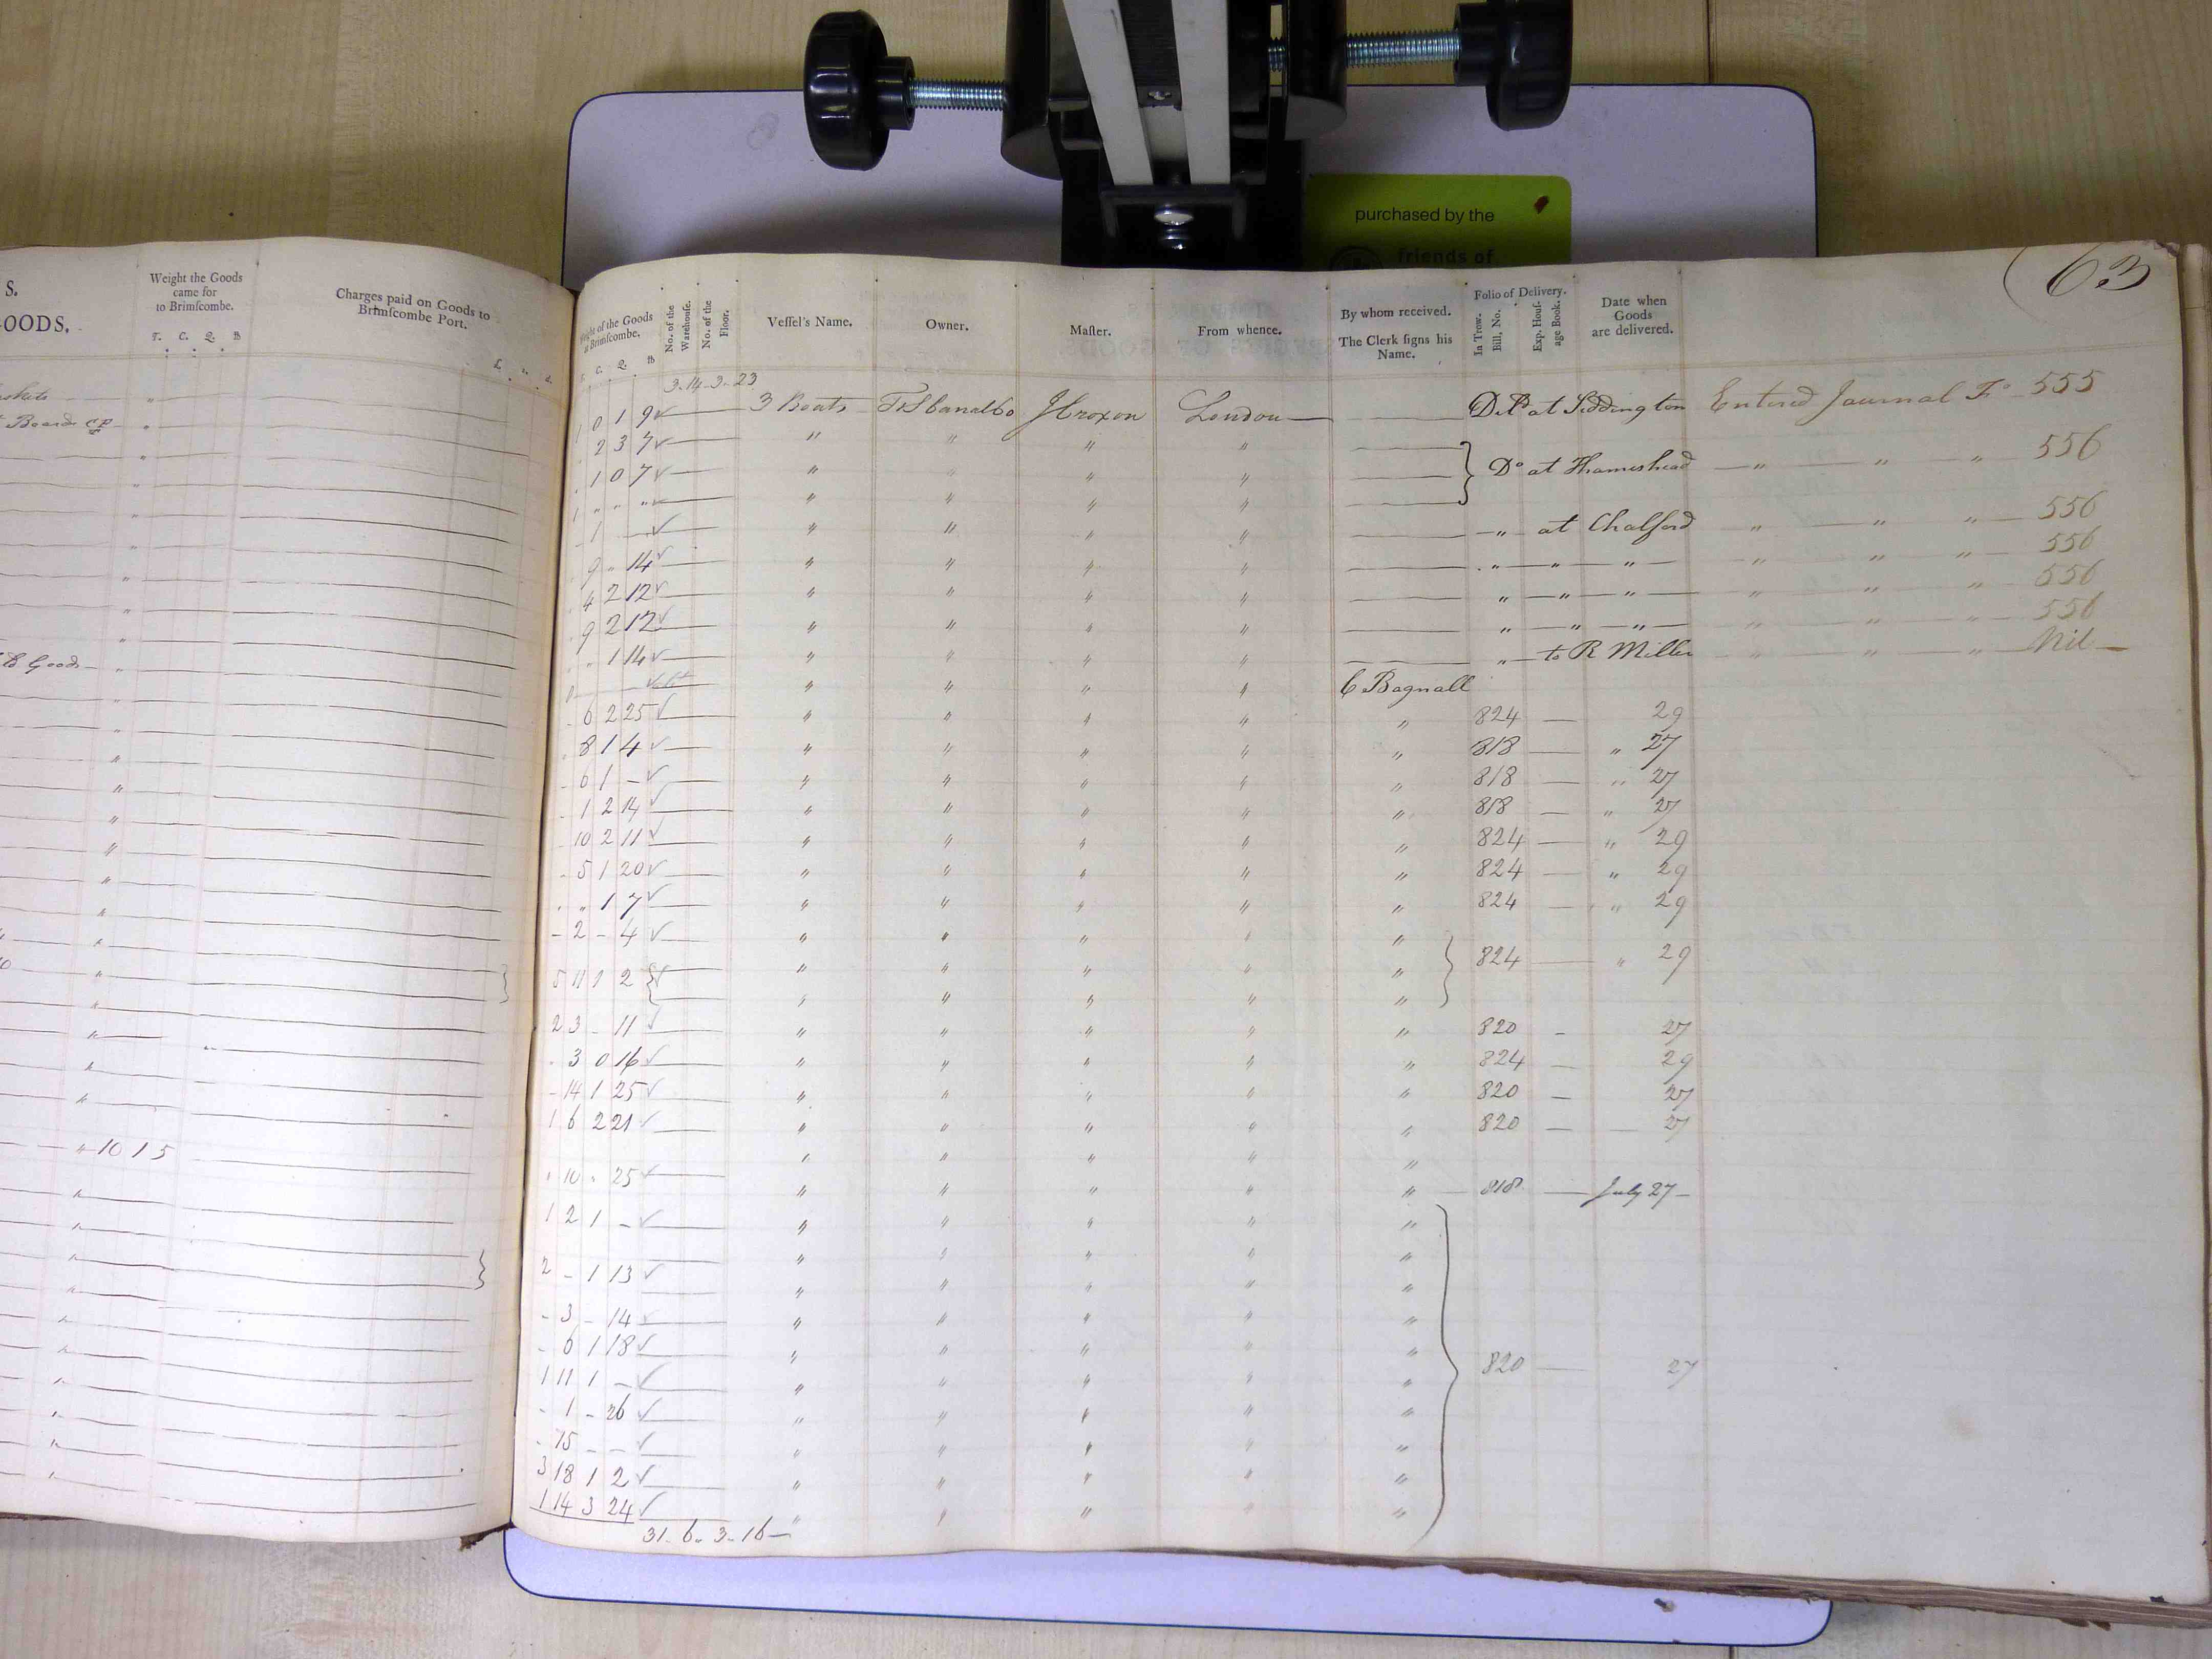 purchased by the
friends of
63
S.
OODS.
Weight the Goods
came for
to Brimſcombe.
T. C. Q. lb
Charges paid on Goods to
Brimſcombe Port.
£. s. d.
of the Goods
at Brimſcombe.
C. Q. lb
No. of the
Warehouſe.
No. of the
Floor.
Veſſel's Name.
Owner.
Maſter.
From whence.
By whom received.
The Clerk ſigns his
Name.
Folio of Delivery.
In Trow.
Bill, No.
Exp. Houſ-
age Book.
Date when
Goods
are delivered.
3-14-3-23
1 0 1 9 ✓ 3 Boats London Deld at Siddington Entered Journal Fo 555
2 3 7 ✓ " " " "
1 0 7 ✓ " " " " Do at Thameshead " " " 556
1 " " " ✓ " " " "
1 - - ✓ " " " " " at Chalford " " " 556
9 " 14 ✓ " " " " " " " " " " 556
4 2 12 ✓ " " " " " " " " " " 556
9 2 12 ✓ " " " " " " " " " " 556
" 1 14 ✓ " " " " " to R Miller " " " Nil
Goods " " " " " C Bagnall
- 6 2 25 ✓ " " " " " 824 — 29
8 1 4 ✓ " " " " " 818 — " 27
- 6 1 - ✓ " " " " " 818 — " 27
- 1 2 14 ✓ " " " " " 818 — " 27
10 2 11 ✓ " " " " " 824 — " 29
- 5 1 20 ✓ " " " " " 824 — " 29
" 1 7 ✓ " " " " " 824 — " 29
- 2 - 4 ✓ " " " " "
5 11 1 2 ✓ " " " " " 824 — " 29
" " " " "
2 3 - 11 ✓ " " " " " 820 - 27
- 3 0 16 ✓ " " " " " 824 — 29
- 14 1 25 ✓ " " " " " 820 — 27
1 6 2 21 ✓ " " " " " 820 — 27
" 10 1 5 " " " " "
10 " 25 ✓ " " " " " 818 — July 27
1 2 1 - ✓ " " " " "
" " " " "
2 - 1 13 ✓ " " " " "
- 3 - 14 ✓ " " " " "
- 6 1 18 ✓ " " " " " 820 — 27
1 11 1 - ✓ " " " " "
- 1 - 26 ✓ " " " " "
- 15 - - ✓ " " " " "
3 18 1 2 ✓ " " " " "
1 14 3 24 ✓ " " " " "
31-6-3-16